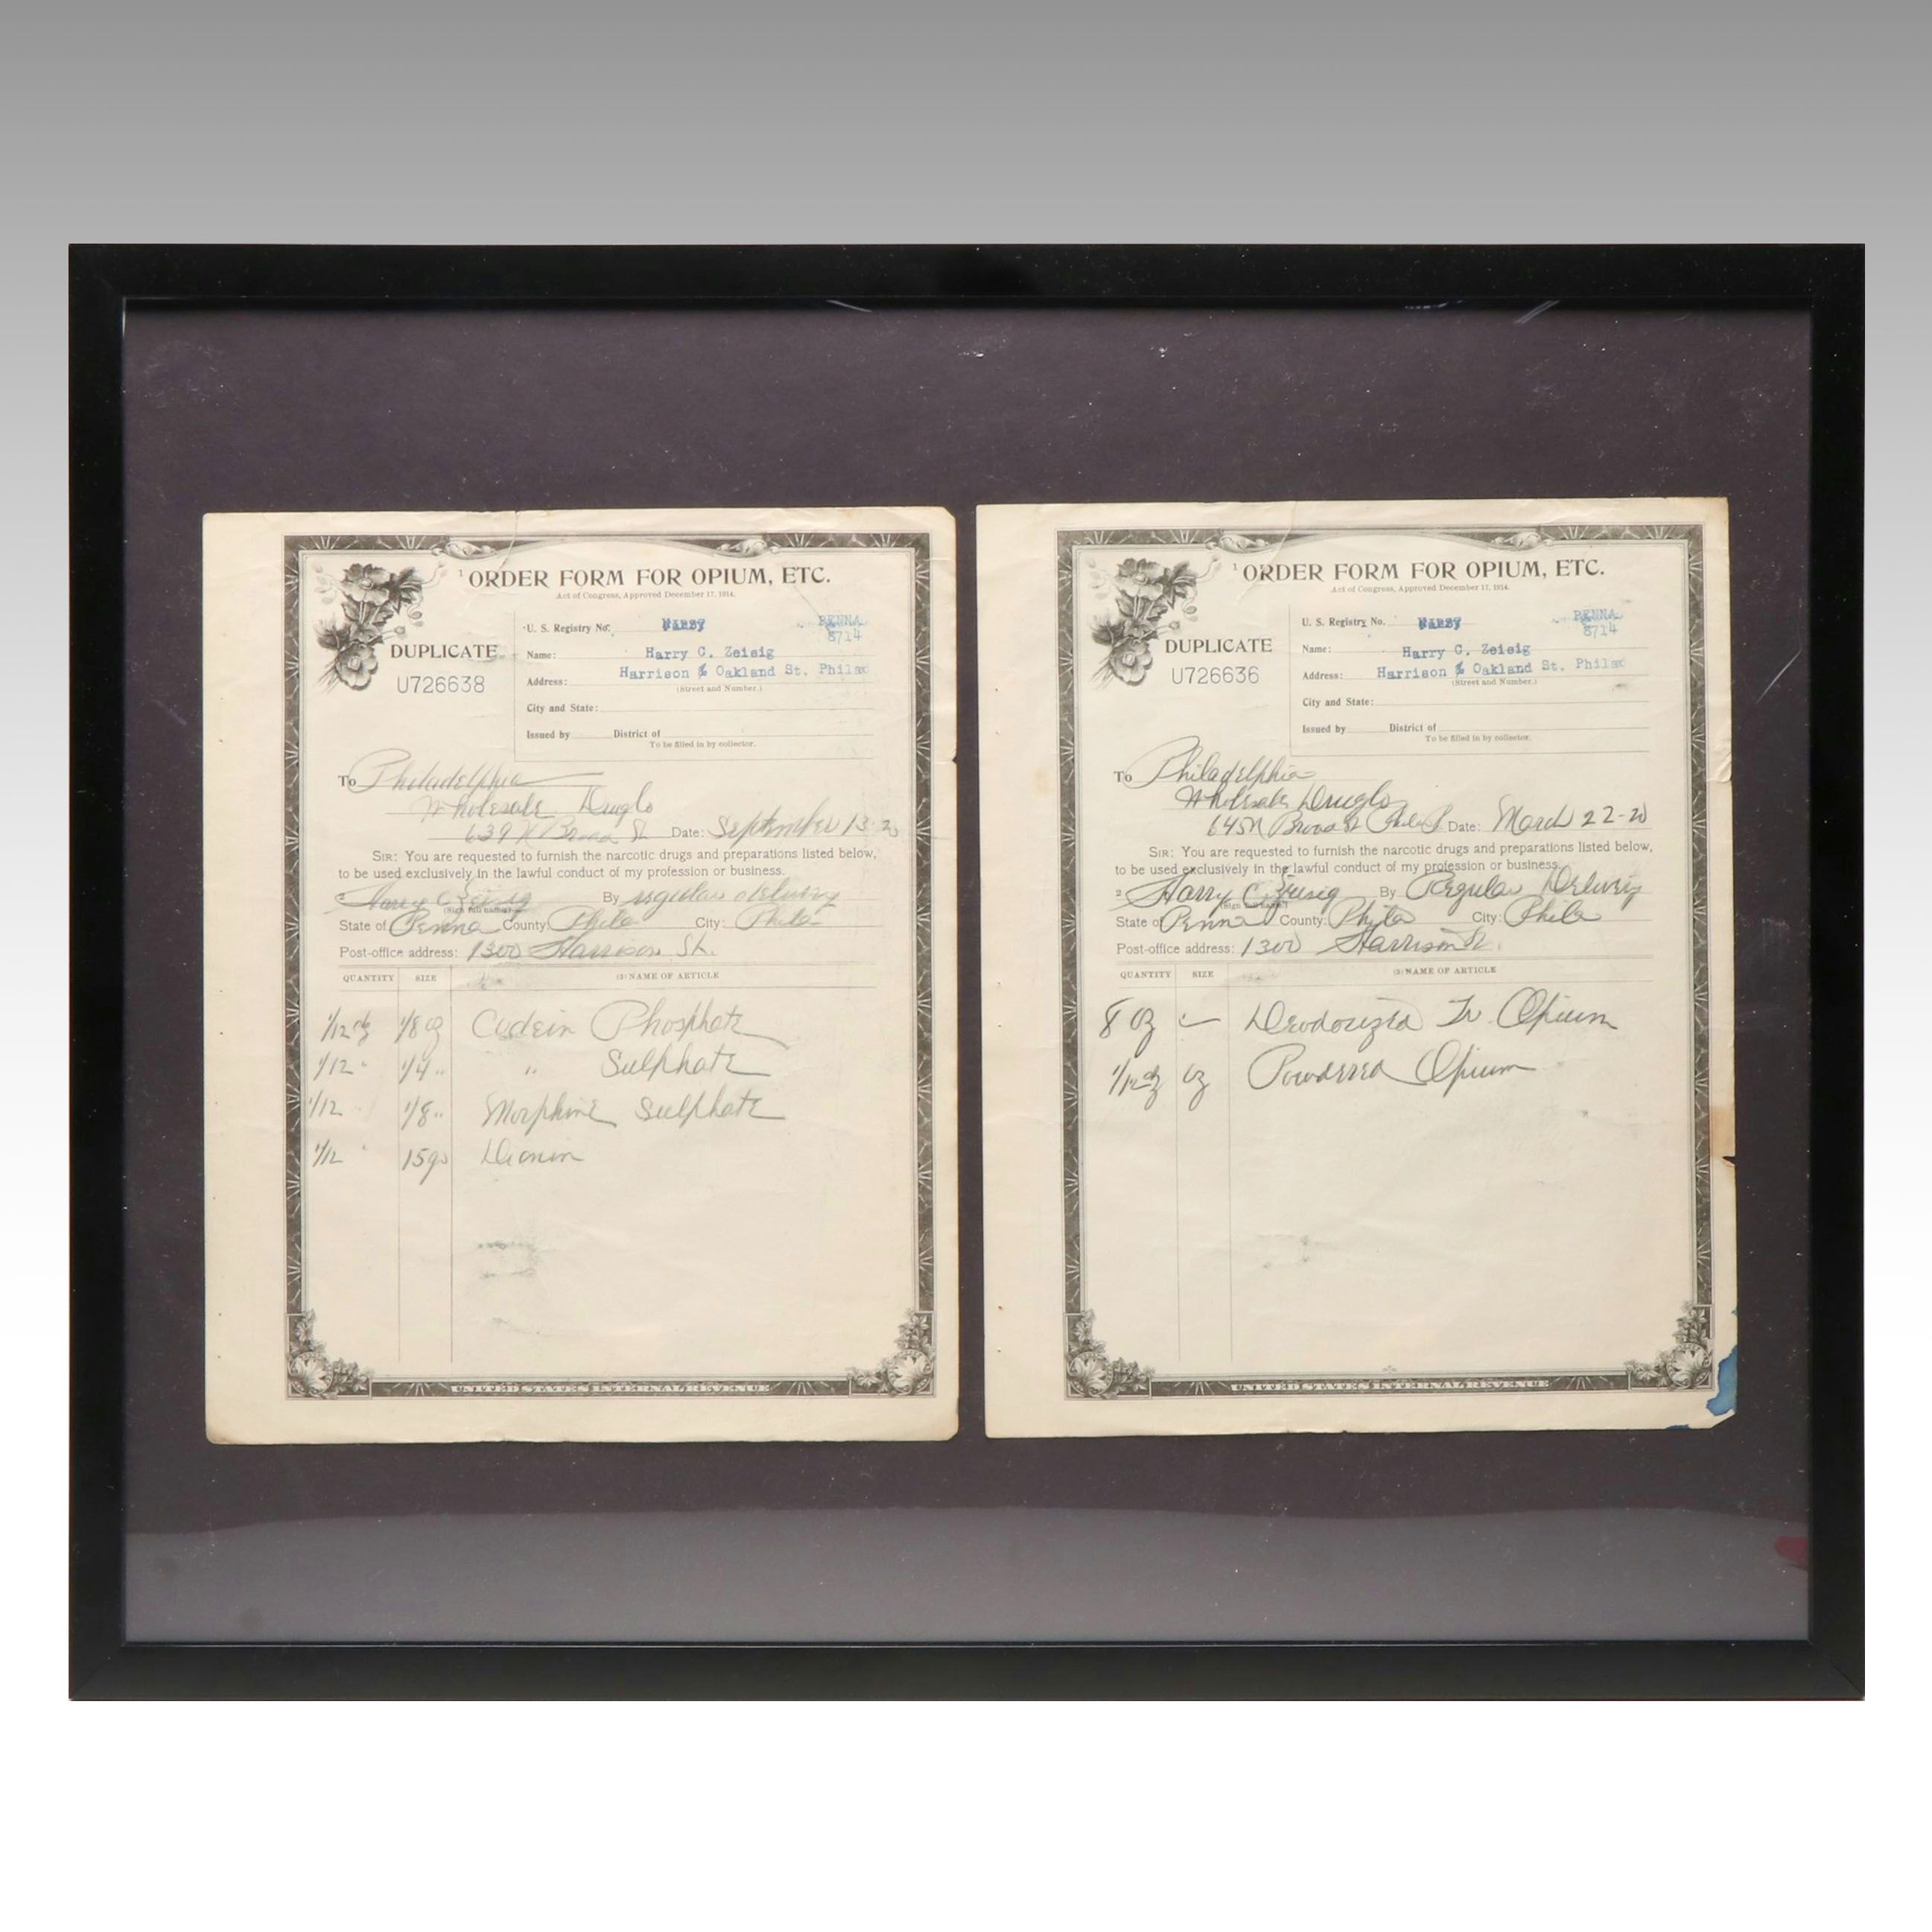 1 ORDER FORM FOR OPIUM, ETC.
Act of Congress, Approved December 17, 1914.
DUPLICATE
U726638
U. S. Registry No.
PENNA
8714
Name: Harry C. Zeisig
Address: Harrison & Oakland St. Phila
(Street and Number.)
City and State:
Issued by District of
To be filled in by collector.
To Philadelphia
Wholesale Drug Co
639 N Broad St. Date: September 13-20
SIR: You are requested to furnish the narcotic drugs and preparations listed below,
to be used exclusively in the lawful conduct of my profession or business.
2 Harry C Zeisig By regular delivery
(Sign full name)
State of Penna County: Phila City: Phila
Post-office address: 1300 Harrison St.
QUANTITY SIZE (3) NAME OF ARTICLE
1/12 dz 1/8 oz Codein Phosphate
1/12 " 1/4 " " Sulphate
1/12 1/8 " Morphine Sulphate
1/12 " 15 gr Dionin
UNITED STATES INTERNAL REVENUE
1 ORDER FORM FOR OPIUM, ETC.
Act of Congress, Approved December 17, 1914.
DUPLICATE
U726636
U. S. Registry No.
PENNA
8714
Name: Harry C. Zeisig
Address: Harrison & Oakland St. Phila
(Street and Number.)
City and State:
Issued by District of
To be filled in by collector.
To Philadelphia
Wholesale Drug Co
645 N Broad St Phila Date: March 22-20
SIR: You are requested to furnish the narcotic drugs and preparations listed below,
to be used exclusively in the lawful conduct of my profession or business.
2 Harry C Zeisig By Regular Delivery
(Sign full name)
State of Penna County: Phila City: Phila
Post-office address: 1300 Harrison St.
QUANTITY SIZE (3) NAME OF ARTICLE
8 oz — Deodorized Tr. Opium
1/12 dz oz Powdered Opium
UNITED STATES INTERNAL REVENUE